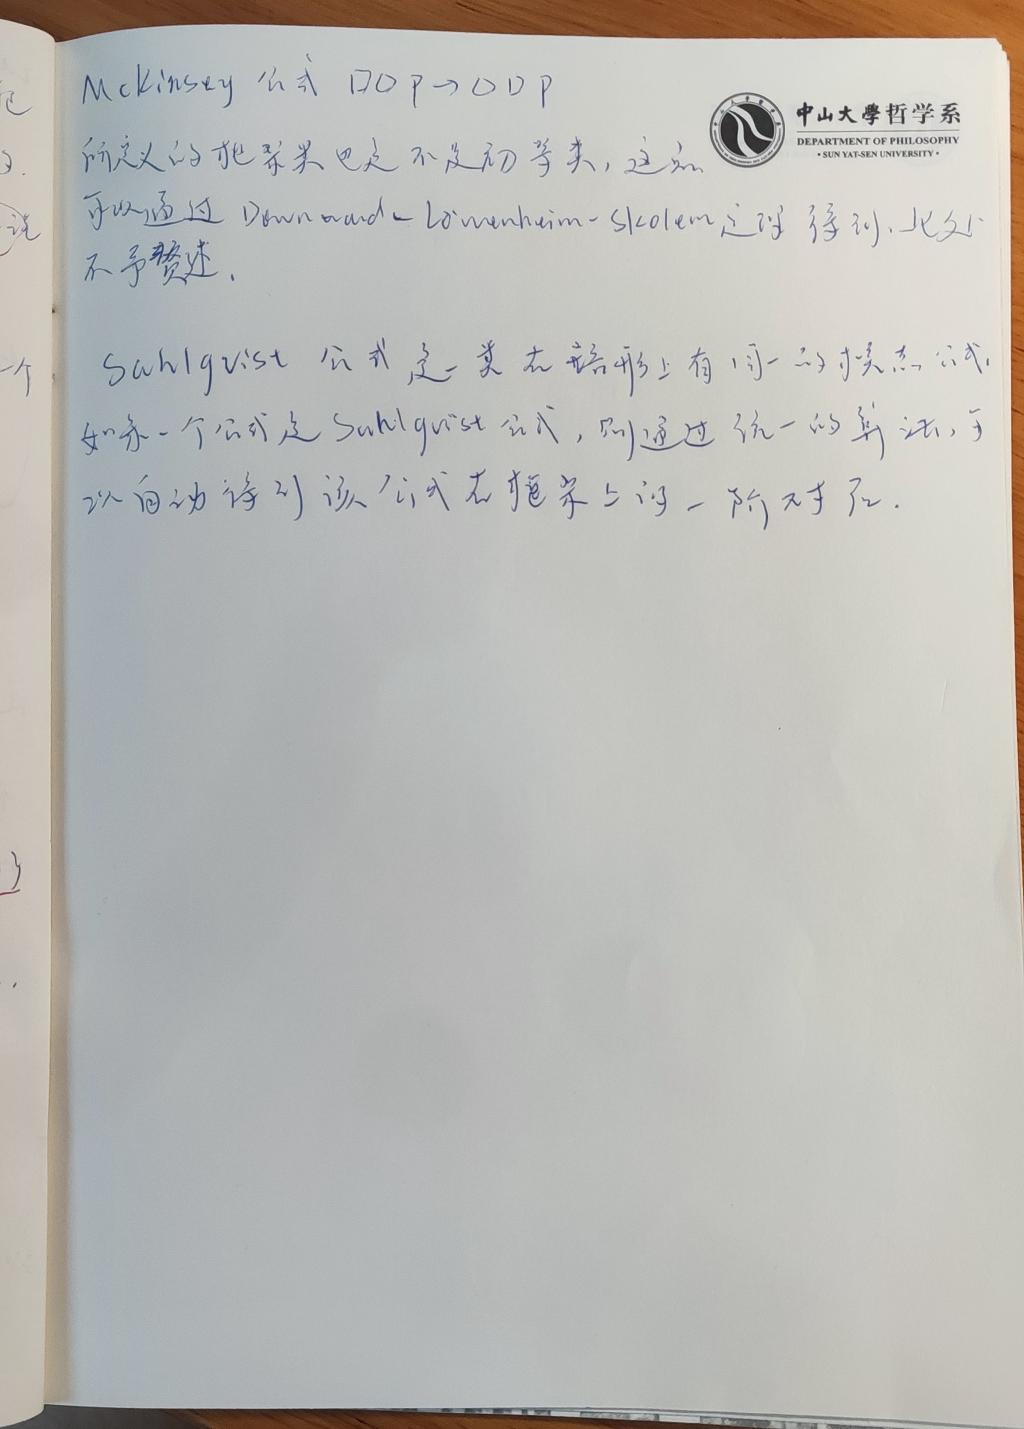 Mckinsey 公式 □◇p→◇□p
中山大學哲学系
DEPARTMENT OF PHILOSOPHY
• SUN YAT-SEN UNIVERSITY •
所定义的框架类也是不是初等类,这点
可以通过 Downward-Löwenheim-Skolem 定理得到,此处
不予赘述.
Sahlqvist 公式是一类在 形上有同一的模态公式.
如果一个公式是 Sahlqvist 公式,则通过统一的算法,可
以自动得到该公式在框架上的一阶对应.
一个